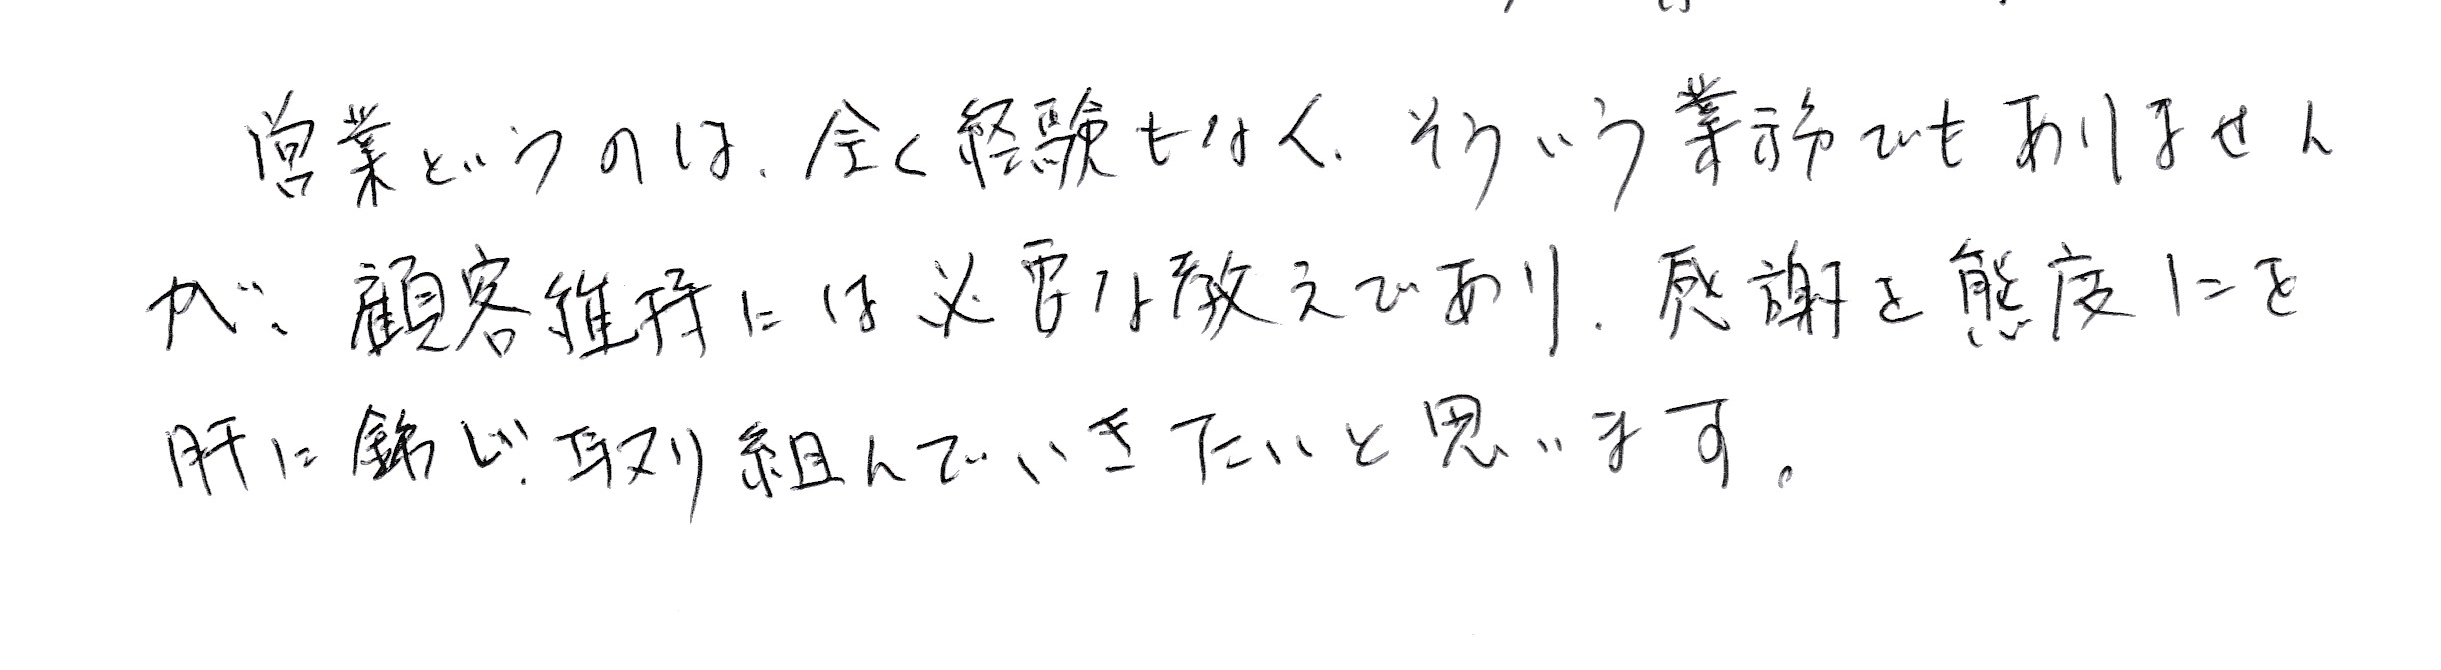 営業というのは、全く経験もなく、そういう業務でもありません
が、顧客維持には必要な教えであり、感謝を態度にを
肝に銘じ、取り組んでいきたいと思います。